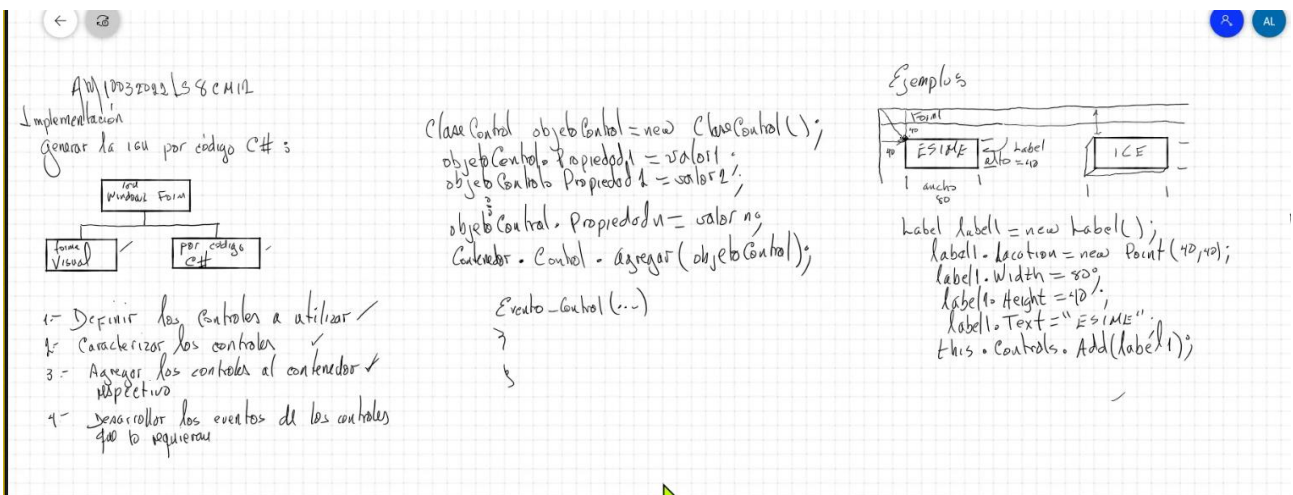 AL
Implementación
generar la IGU por código C# :
Windows Form
forma
Visual
por código
C#
1.- Definir los controles a utilizar
2- Caracterizar los controles
3.- Agregar los controles al contenedor
respectivo
4- Desarrollar los eventos de los controles
que lo requieran
ClaseControl objetoControl = new ClaseControl();
objetoControl.Propiedad1 = valor1;
objetoControl.Propiedad1 = valor2;
objetoControl.Propiedad n = valor n;
Contenedor.Control.agregar(objetoControl);
Evento_Control(...)
{
}
Ejemplos
Form
40
40
ESIME
Label
alto = 40
ancho
80
ICE
Label label1 = new Label();
label1.Location = new Point(40,40);
label1.Width = 80;
label1.Height = 40;
label1.Text = "ESIME";
this.Controls.Add(label1);